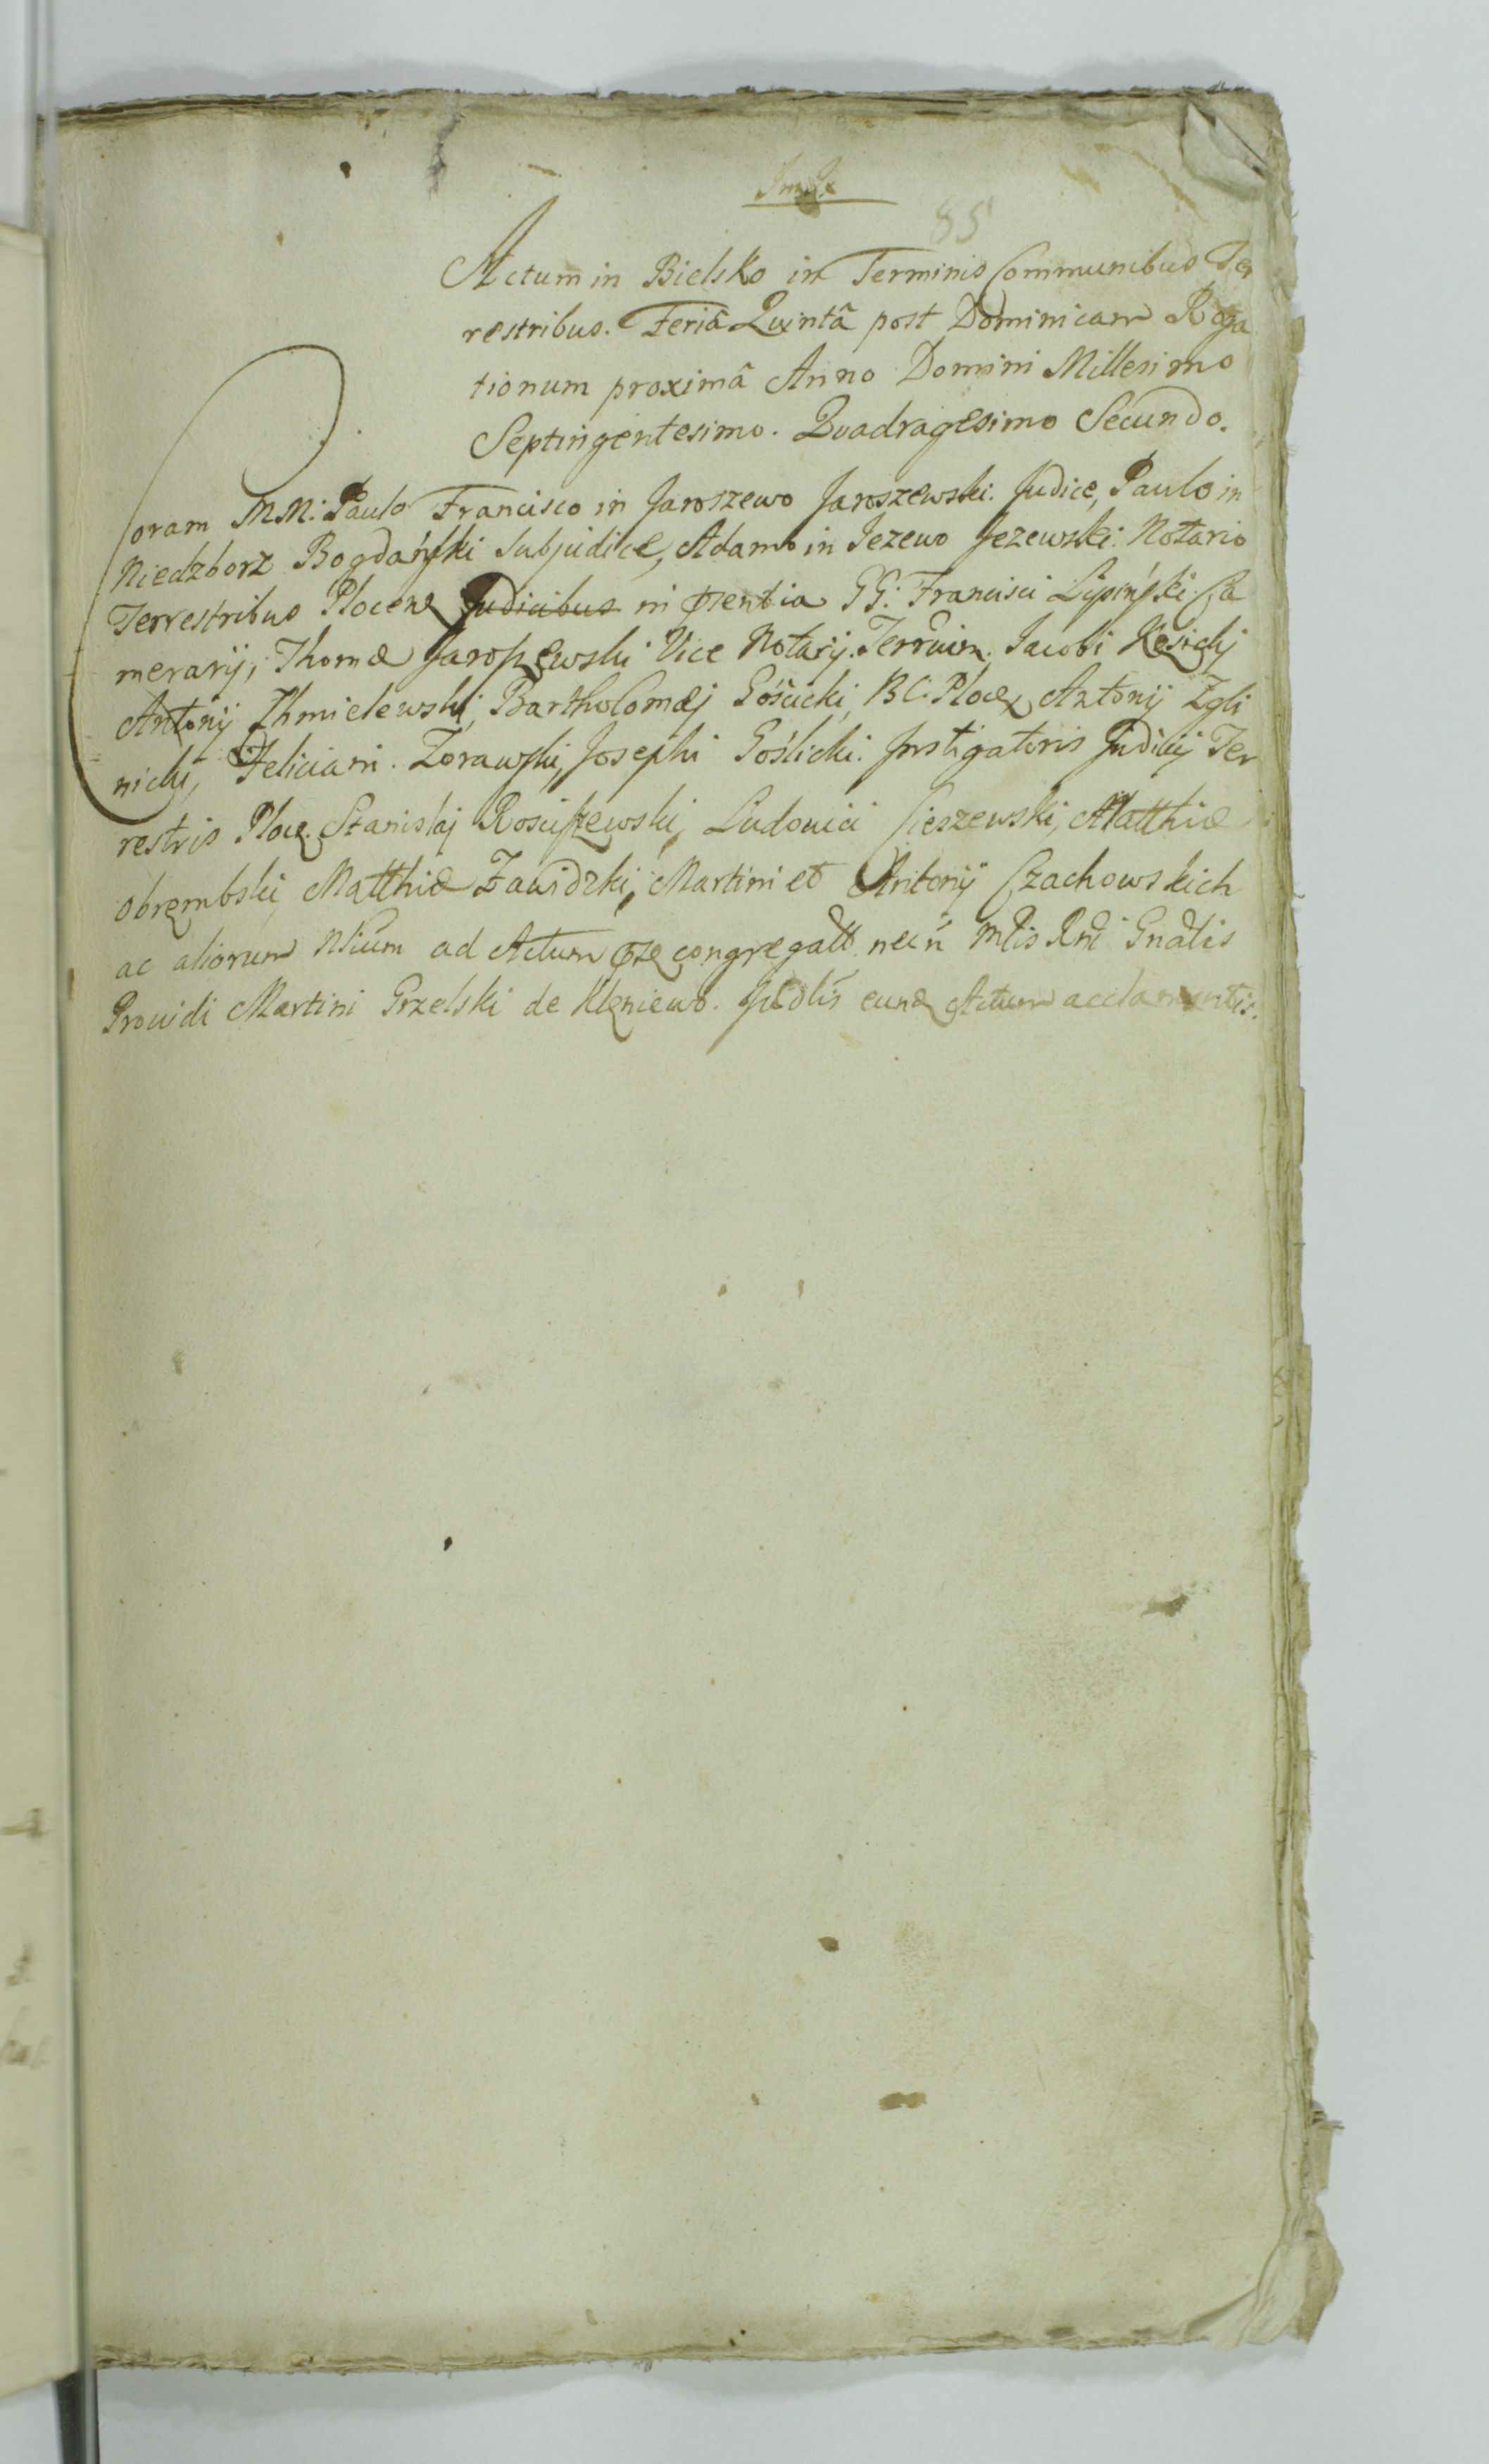 85
Actum in Bielsko in Terminis Communibus Ter
restribus. Feriâ Quintâ post Dominicam Roga
tionum proximâ Anno Domini Millesimo
Septingentesimo. Quadragesimo Secundo.
Coram MM: Paulo Francisco in Jaroszewo Jaroszewski. Judice, Paulo in
Niedzborz Bogdański Subjudice, Adamo in Jezewo Jezewski. Notario
Terrestribus Plocen Judicibus in pńtia GG: Francisci Lipiński. Ca
merarij, Thomæ Jaroszewski Vice Notarij. Terrium. Jacobi Kęsicki
Antonij Chmielewski, Bartholomæj Gościcki, B C. Ploc, Antonij Zgli
nicki, Feliciani. Zorawski, Josephi Goślicki. Instigatoris Judicij Ter
restris Ploc. Stanislaj Rosciszewski, Ludovici Cieszewski, Matthiæ
Obrembski, Matthiæ Zawidzki, Martini et Antonij Czachowskich
ac aliorum Nlium ad Actum congregatt. necń Mtis Rni Gnalis
Providi Martini Grzelski de Kleniewo. Judlis eund Actum acclamantis.